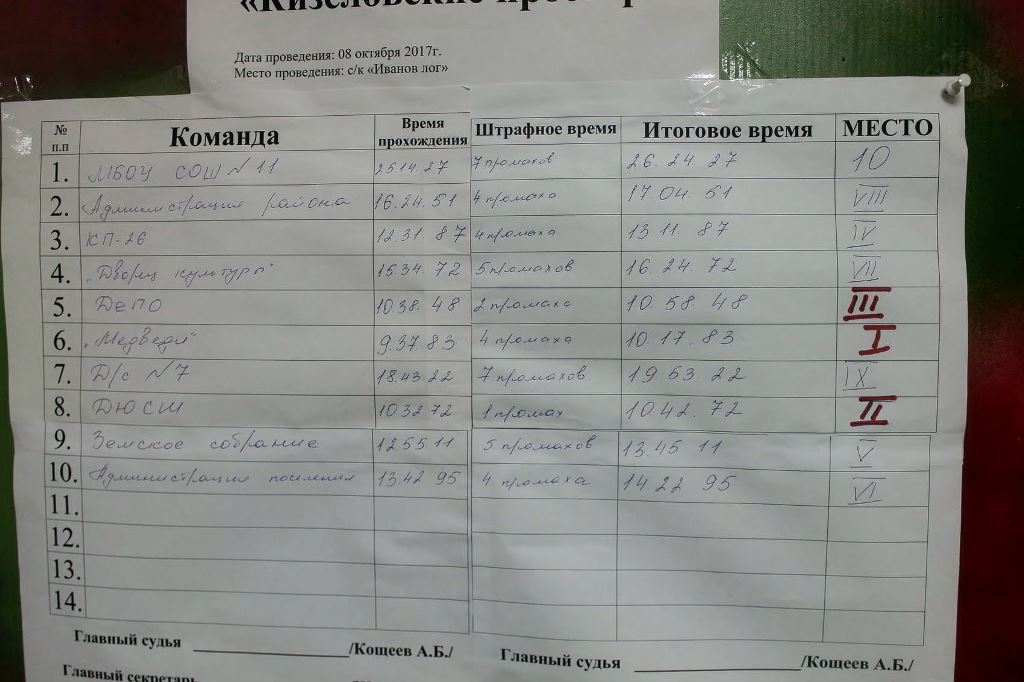 «Кизеловские
Дата проведения: 08 октября 2017г.
Место проведения: с/к «Иванов лог»
№ п.п Команда Время прохождения Штрафное время Итоговое время МЕСТО
1. МБОУ СОШ №11 25 14. 27 7 промахов 26. 24. 27 10
2. Администрация района 16. 24. 51 4 промаха 17 04. 51 VIII
3. КП-26 12. 31. 87 4 промаха 13 11. 87 IV
4. „Дворец культуры" 15.34. 72 5 промахов 16. 24. 72 VII
5. Депо 10.38. 48 2 промаха 10. 58. 48 III
6. „Медведи" 9.37 83 4 промаха 10. 17. 83 I
7. Д/с №7 18.43.22 7 промахов 19 53. 22 IX
8. ДЮСШ 10.32 72 1 промах 10.42. 72 II
9. Земское собрание 12 55 11 5 промахов 13.45 11 V
10. Администрация поселения 13.42 95 4 промаха 14 22 95 VI
11.
12.
13.
14.
Главный судья /Кощеев А.Б./ Главный судья /Кощеев А.Б./
Главный секретарь